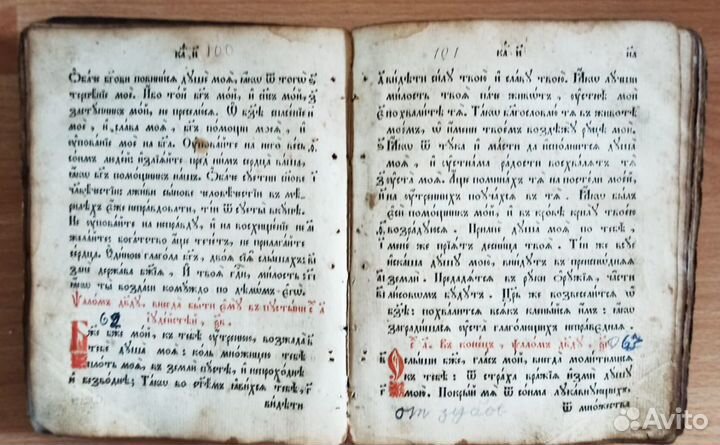 КА҃. И҃ 100
Ѻба́че бг҃ови повини́сѧ душѐ моѧ̀, ꙗ҆́кѡ ѿ тогѡ̀
терпѣ́нїе моѐ. И҆́бо то́й бг҃ъ мо́й, и҆ сп҃съ мо́й,
засту́пникъ мо́й, не преселю́сѧ. Ѡ҆ бз҃ѣ спасе́нїе
моѐ, и҆ сла́ва моѧ̀, бг҃ъ по́мощи моеѧ̀, и҆
ᲂу҆пова́нїе моѐ на бг҃а. Оу҆пова́йте на него̀ ве́сь
со́нмъ люде́й: и҆злїѧ́йте пред ни́мъ сердца̀ ва́ша,
ꙗ҆́кѡ бг҃ъ помо́щникъ на́шъ. Ѻба́че су́етни сы́нове
чл҃вѣ́честїи: лжи́ви сы́нове человѣ́честїи в мѣ́-
рилѣхъ є҆́же непра́вдовати, ті́и ѿ суеты̀ вку́пѣ.
Не ᲂу҆пова́йте на непра́вду, и҆ на восхище́нїе не
жела́йте: бога́тство а҆́ще тече́тъ, не прилага́йте
се́рдца. Є҆ди́ною гл҃го́ла бг҃ъ, двоѧ̀ сїѧ̀ слы́шахъ:
занѐ держа́ва бж҃їѧ, И҆ твоѧ̀ гд҇и, ми́лость:
ꙗ҆́кѡ ты̀ возда́си комуждо по дѣлѡ́мъ є҆гѡ̀.
Ѱало́мъ дв҃ду, внегда̀ бы́ти є҆му̀ в пусты́ни
і҆уде́йстѣй, ѯ҃в.
62
Бж҃е бж҃е мо́й, к тебѣ̀ ᲂу҆́тренюю, возжада̀
тебѐ душа̀ моѧ̀: ко́ль мно́жицею тебѣ̀
пло́ть моѧ̀, в землѝ пу́стѣ, и҆ непрохо́днѣ
и҆ безво́днѣ; Та́кѡ во ст҃ѣмъ ꙗ҆ви́хсѧ тебѣ̀,
ви́дѣти
101 КА҃. И҃
ви́дѣти си́лу твою̀ и҆ сла́ву твою̀. Ꙗ҆́кѡ лу́чши
ми́лость твоѧ̀ па́че живѡ́тъ, ᲂу҆стнѣ̀ моѝ
похвали́тѣ тѧ̀. Та́кѡ благословлю̀ тѧ̀ в животѣ̀
мое́мъ, ѡ҆ и҆́мени твое́мъ воздѣжу̀ ру́цѣ моѝ.
Ꙗ҆́кѡ ѿ ту́ка и҆ ма́сти да и҆спо́лнитсѧ душа̀
моѧ̀, и҆ ᲂу҆стна́ма ра́дости восхва́лѧтъ тѧ̀
ᲂу҆ста̀ моѧ̀. А҆́ще помина́хъ тѧ̀ на посте́ли мое́й,
на ᲂу҆́тренихъ поуча́хсѧ в тѧ̀. Ꙗ҆́кѡ бы́лъ
є҆сѝ помо́щникъ мо́й, и҆ в кро́вѣ крилꙋ̀ твое́ю
возра́дуюсѧ. Прильпѐ душа̀ моѧ̀ по тебѣ̀,
менѐ же прїѧ́тъ десни́ца твоѧ̀. Ті́и же всу́е
и҆ска́ша ду́шу мою̀, вни́дутъ в преиспо́днѧѧ
землѝ. Предадѧ́тсѧ в ру́ки ѻ҆ру́жїѧ, ча́сти
ли́совомъ бу́дутъ. Цр҃ь же возвесели́тсѧ ѡ҆
бз҃ѣ: похва́литсѧ всѧ́къ клены́йсѧ и҆́мъ: ꙗ҆́кѡ
загради́шасѧ ᲂу҆ста̀ глаго́лющихъ непра́веднаѧ.
В коне́цъ, ѱало́мъ дв҃ду,
Оу҆слы́ши бж҃е, гла́съ мо́й, внегда̀ моли́тимисѧ
к тебѣ̀: ѿ стра́ха вра́жїѧ и҆змѝ ду́шу
мою̀. Покры́й мѧ̀ ѿ со́нма лука́внующихъ,
ѿ мно́жества
Avito